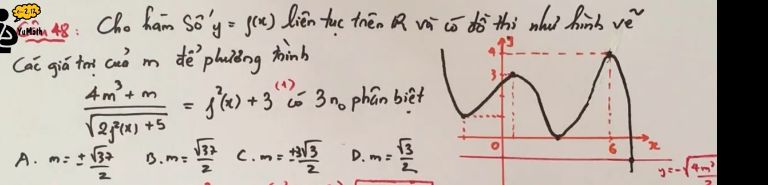 Câu 48: Cho hàm số y = f(x) liên tục trên R và có đồ thị như hình vẽ
Các giá trị của m để phương trình
\frac{4m^3+m}{\sqrt{2f^2(x)+5}} = f^2(x)+3 (1) có 3 n_0 phân biệt
A. m = ±\frac{\sqrt{37}}{2} B. m = \frac{\sqrt{37}}{2} C. m = \frac{±3\sqrt{3}}{2} D. m = \frac{\sqrt{3}}{2}
y
4
3
0
6
x
YuMath